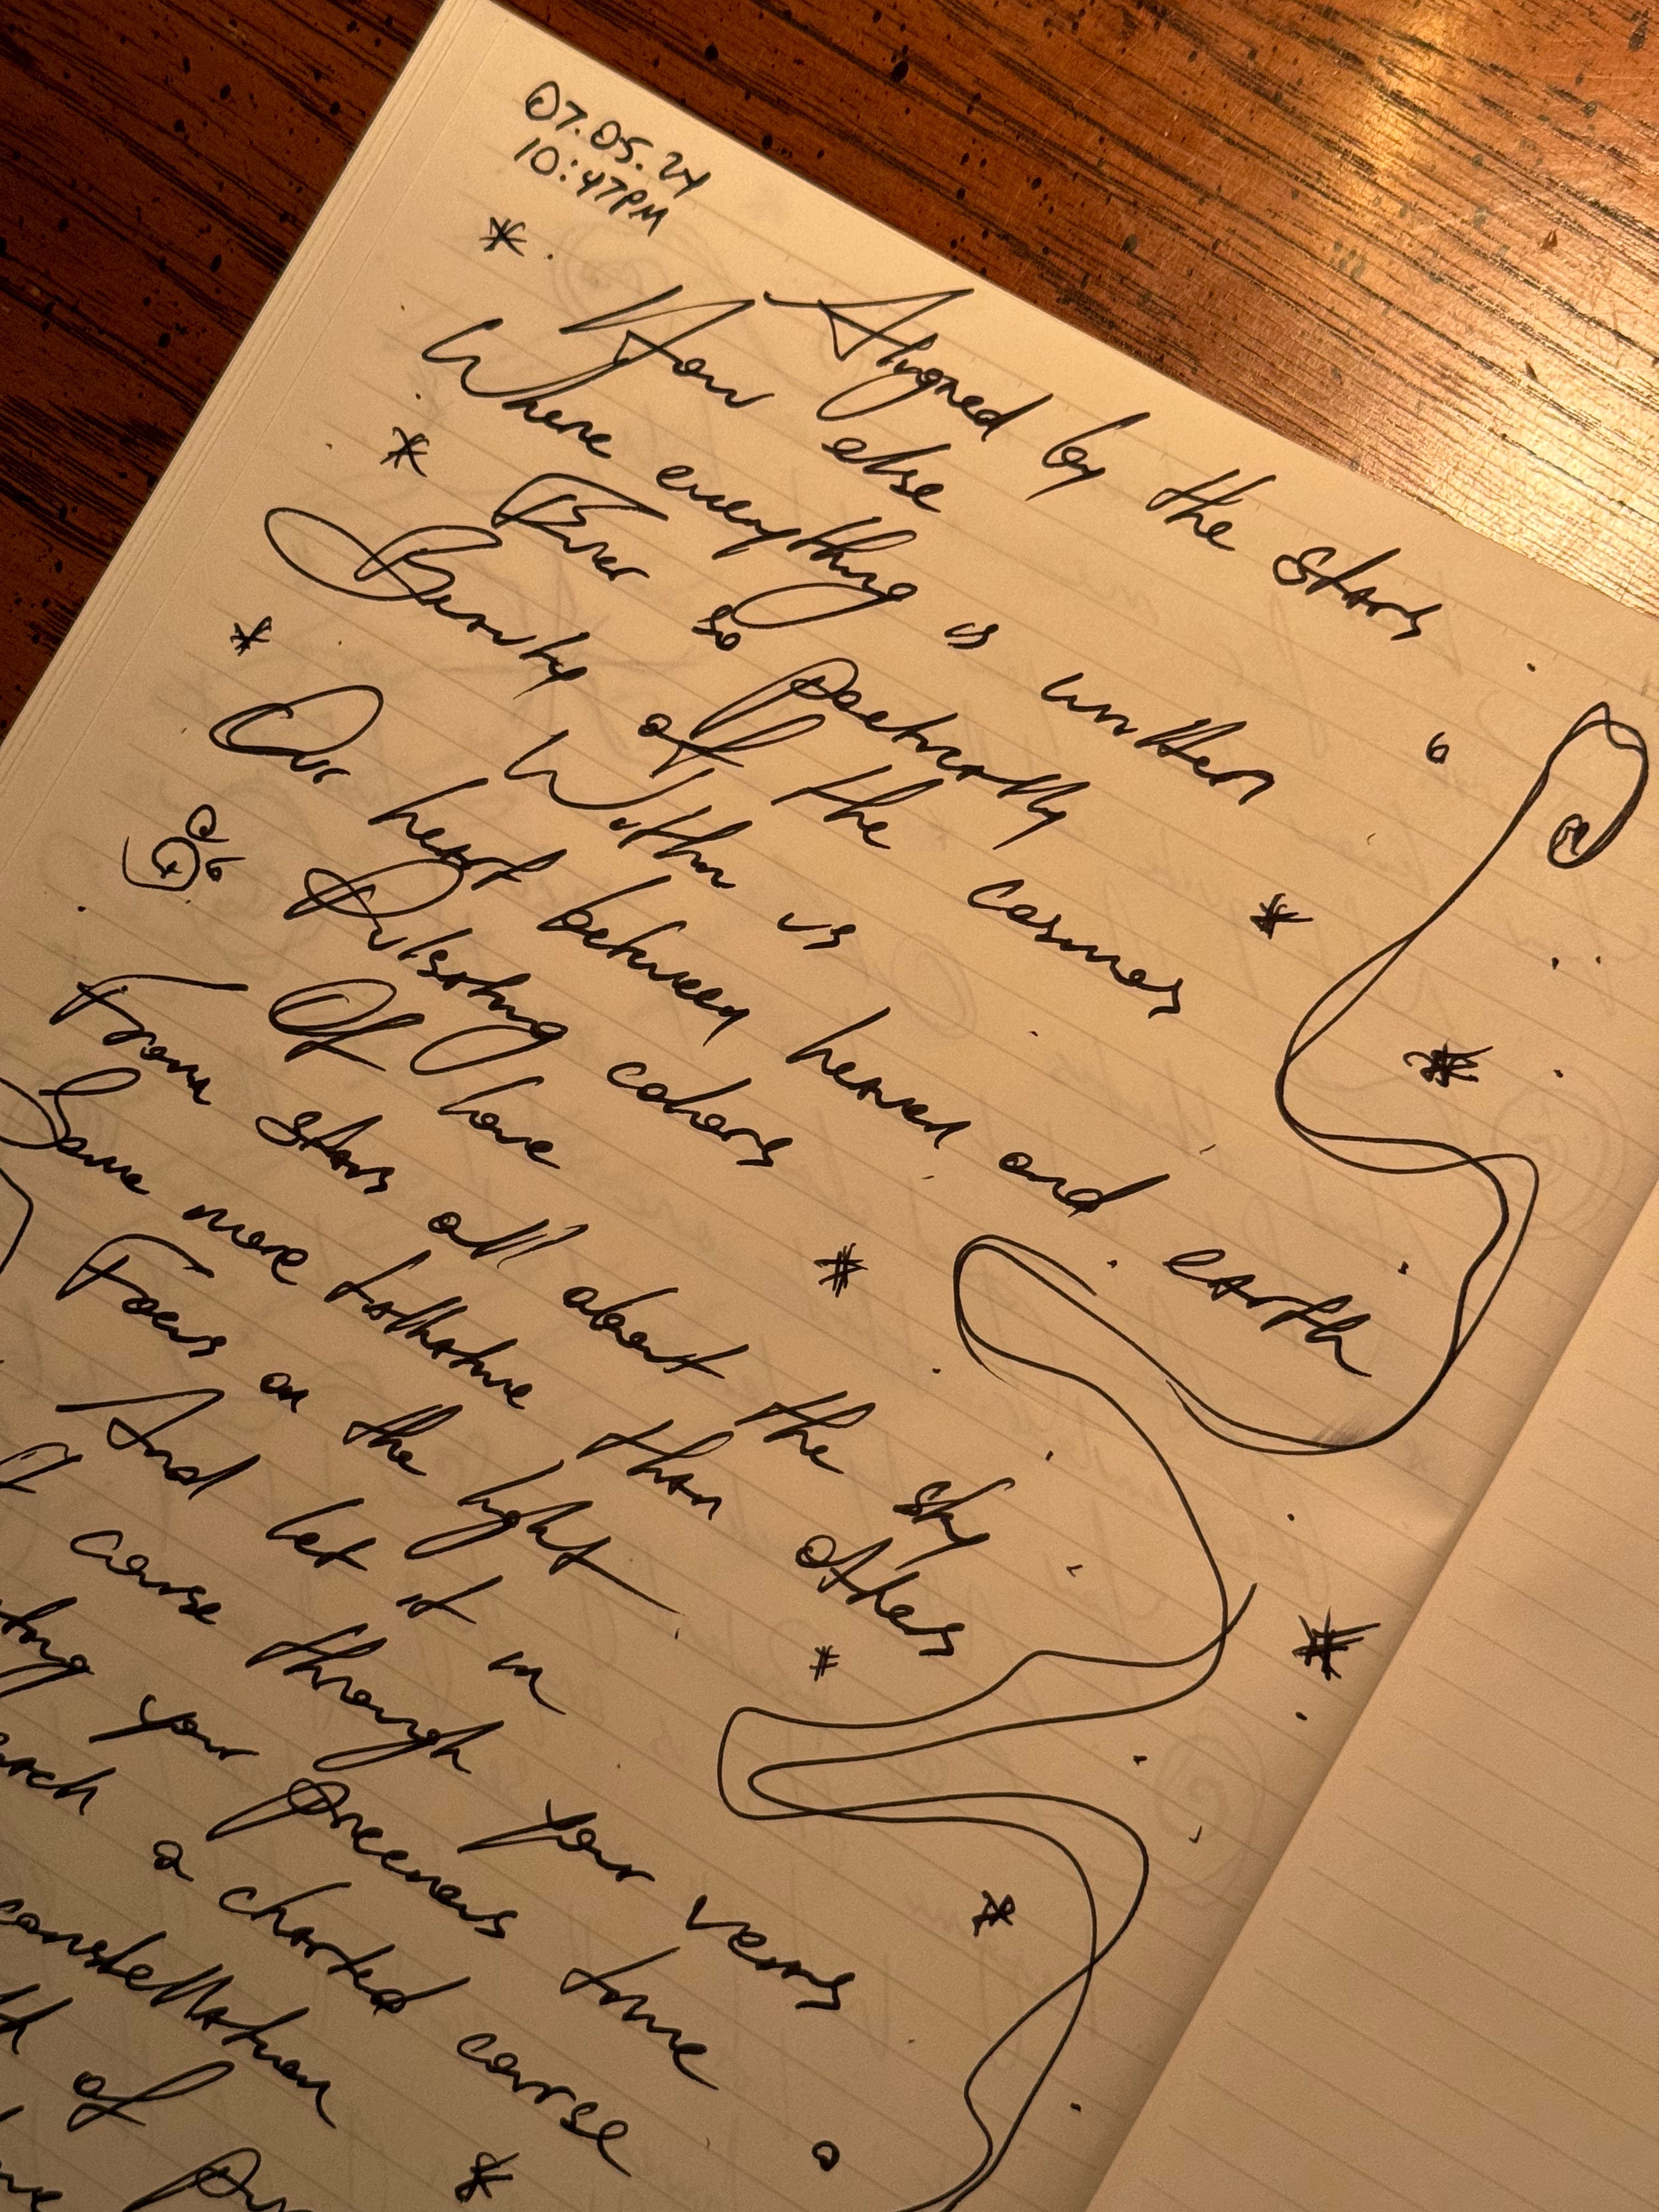 07.05.24
10:47PM
Aligned by the stars
How else
Where everything is written
Ever so poetically
Beauty of the cosmos
Within us
Our heart between heaven and earth
Pulsating colors
Of love
From stars all about the sky
Some more talkative than others
Focus on the light
And let it in
It course through your veins
your precious time
a charted course
constellation
of